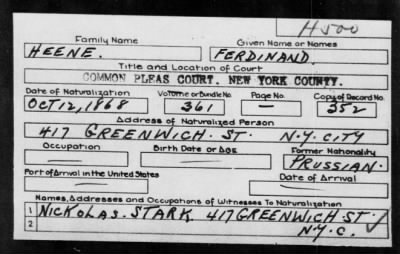 H500
Family Name Given Name or Names
HEENE. FERDINAND.
Title and Location of Court
COMMON PLEAS COURT. NEW YORK COUNTY.
Date of Naturalization Volume or Bundle No. Page No. Copy of Record No.
OCT 12, 1868 361 — 352
Address of Naturalized Person
417 GREENWICH. ST. N.Y. CITY
Occupation Birth Date or Age Former Nationality
PRUSSIAN.
Port of Arrival in the United States Date of Arrival
Names, Addresses and Occupations of Witnesses To Naturalization
1 NICKOLAS. STARK. 417 GREENWICH ST.
2 N.Y.C.